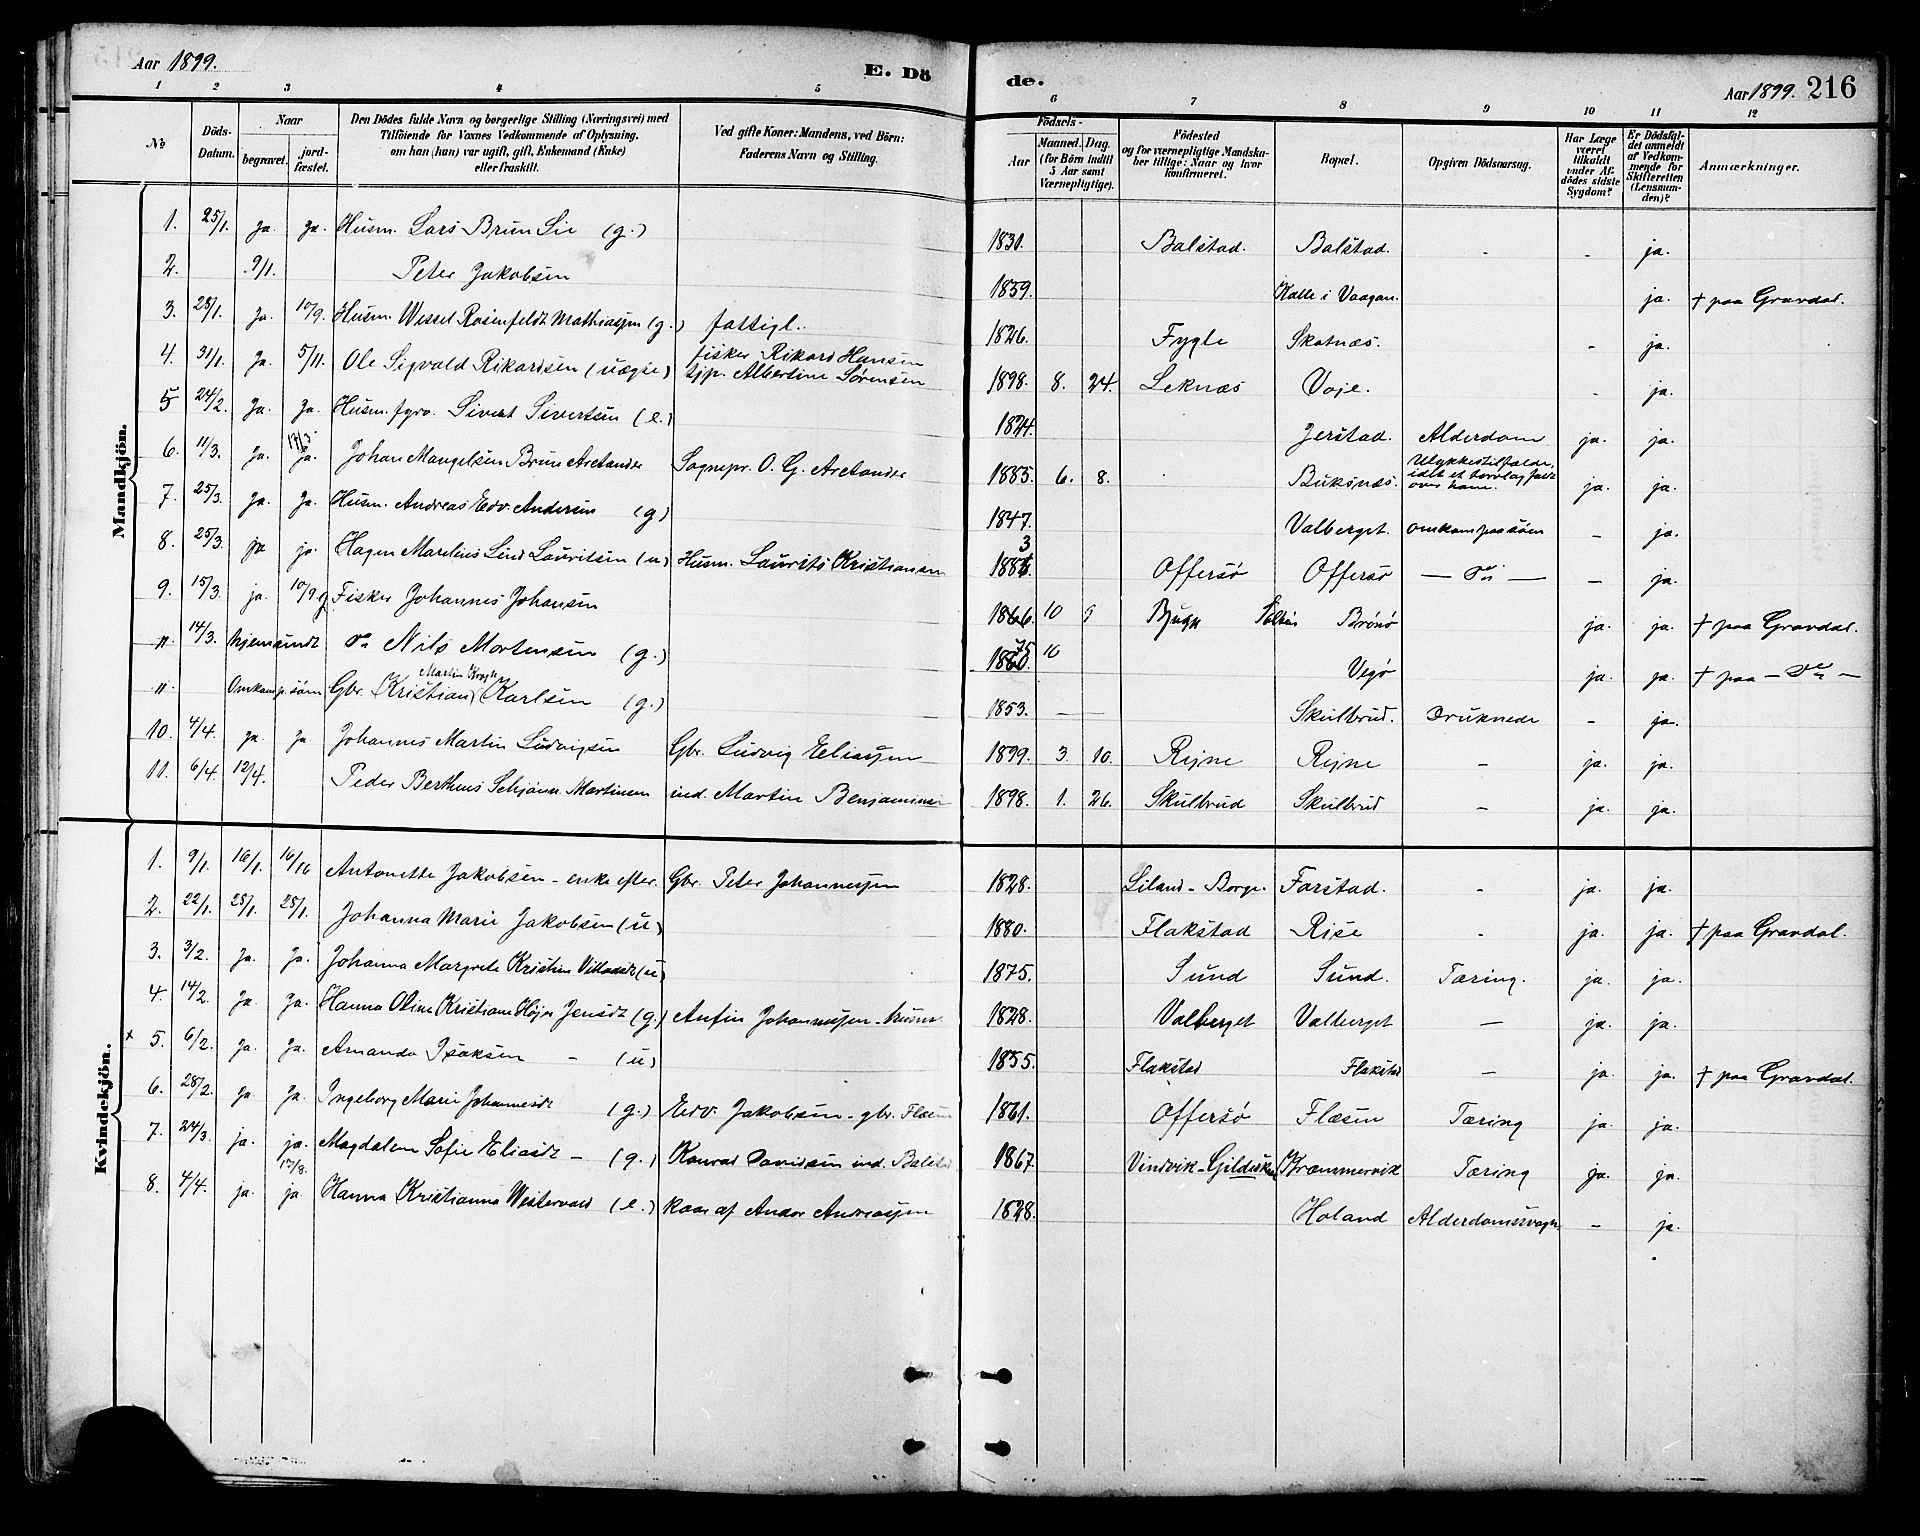 Aar 1899.
E. Dö
de.
Aar 1899. 216
1 2 3 4 5
6 7 8 9 10 11 12
No
Döds-Datum.
Naar
begravet.
jordfæstet.
Den Dödes fulde Navn og borgerlige Stilling (Næringsvei) med
Tilföiende for Voxnes Vedkommende af Oplysning,
om han (hun) var ugift, gift, Enkemand (Enke)
eller fraskilt.
Ved gifte Koner: Mandens, ved Börn:
Faderens Navn og Stilling.
Födsels-
Aar
Maaned. Dag.
(for Börn indtil
5 Aar samt
Værnepligtige).
Födested
og for værnepligtige Mandskaber
tillige: Naar og hvor
konfirmeret.
Bopæl.
Opgiven Dödsaarsag.
Har Læge
været
tilkaldt
under Afdödes
sidste
Sygdom?
Er Dödsfaldet
anmeldt
af Vedkommende
for
Skifteretten
(Lensmanden)?
Anmærkninger.
Mandkjön.
1. 25/1. ja. ja. Husm. Lars Brun Lie (g.) 1831. Balstad. Balstad. - - ja.
2. 9/1. Peter Jakobsen 1859. Kalle i Vaagan. ja. † paa Gravdal.
3. 28/1. ja. 10/9. Husm. Wessel Rosenfeldt Mathiassen (g.) fattigl. 1826. Fygle Skotnæs. - ja.
4. 31/1. ja. 5/11. Ole Sigvald Rikardsen (uægte) fisker Rikard Hansen
tjp. Albertine Sørensen 1898. 8. 24. Leknæs Voje. - ja.
5 24/2. ja. ja. Husm. fgvo. Sivert Sivertsen (e.) 1824. Jerstad. Alderdom ja. ja.
6. 11/3. ja. 17/3. ja. Johan Mangelsen Brun Arctander Sognepr. O. G. Arctander 1885. 6. 8. Buksnæs. Ulykkestilfælde,
idet et torvlag faldt
over ham. ja. ja.
7. 25/3. ja. ja. Husm. Andreas Edv. Andersen (g) 1847. Valberget. omkom paa søen - ja.
8. 25/3. ja jo. Hagen Marelius Lind Lauritsen (u) Husm. Laurits Kristiansen 1883 Offersø Offersø — do — - ja.
9. 15/3. ja. 10/9. g Fisker Johannes Johansen 1866. 10 9 Brønø ja. ja. † paa Gravdal.
" 14/3. hjemsendt do Nils Mortensen (g.) 1875. 10 Vegø ja. ja. † paa — do —
" Omkom p. søen Gbr. Kristian Martin Krogh Karlsen (g.) 1853. — — Skulbrud. Druknede - ja.
10. 4/4. ja. ja Johannes Martin Ludvigsen Gbr. Ludvig Eliassen 1899. 3. 10. Rejne Rejne - ja. ja.
11. 6/4. 12/4. Peder Bertheus Schjøner Martinsen ind. Martin Benjaminsen 1898. 1. 26. Skulbrud Skulbrud - ja. ja.
Kvindekjön.
1. 9/1. 16/1. 16/16 Antonette Jakobsen - enke efter. Gbr. Peter Johannessen 1828. Liland - Borge. Farstad. - ja. ja.
2. 22/1. 28/1. 28/1. Johanna Marie Jakobsen (u) 1880. Flakstad Rise - ja. ja. † paa Gravdal.
3. 3/2. ja. ja. Johanna Margrete Kristine (u) 1875. Sund Sund. Tæring. ja. ja.
4. 14/2. ja. ja. Hanna Oline Kristiane Højer Jensdt (g.) Anfin Johannessen - husm 1828. Valberget Valberget — ja. ja.
x 5. 6/2. ja. ja. Amanda Isaksen - (u) 1855. Flakstad Flakstad — ja. ja. † paa Gravdal.
6. 28/2. ja. ja. Ingeborg Marie Johannesdt (g.) Edv. Jakobsen - gbr. Flæsen 1861. Offersø Flæsen Tæring ja. ja.
7. 24/3. ja. ja. Magdalena Sofie Eliasdt - (g.) Konrad Davidsen ind. Balstad 1867. Vindvik - Gildeskaal Kræmmervik Tæring ja. ja.
8. 4/4. ja. 17/8. ja. Hanna Kristianna Westervold (e.) kaar af Andor Andreassen 1828. Holand Alderdomssvagh. - ja.